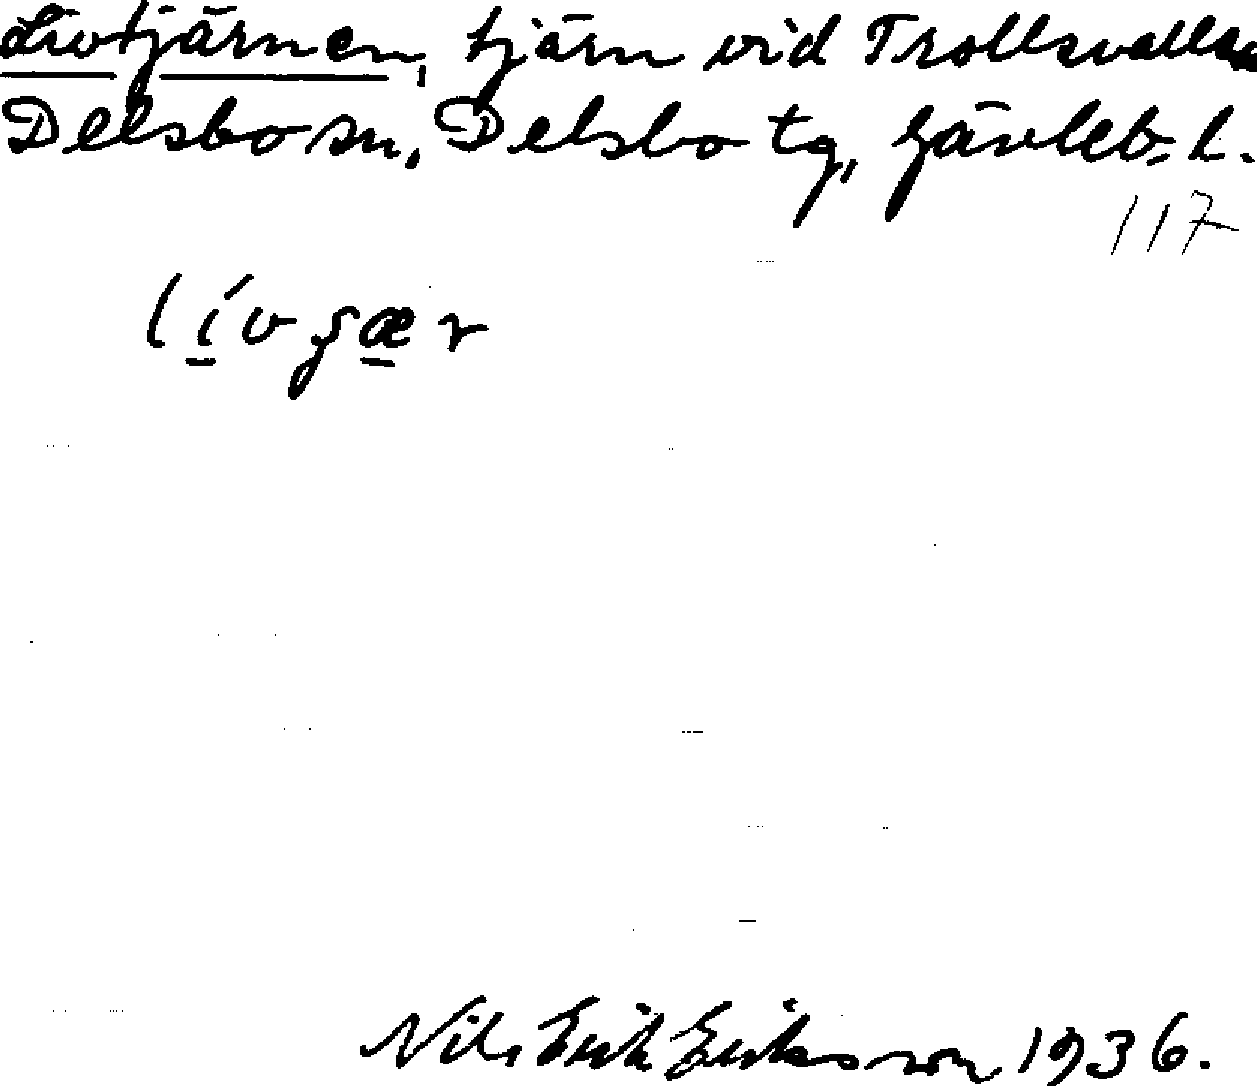 Livtjärnen, tjärn vid Trollsvallen
Delsbo sn, Delsbo tg, Gävleb. l.
117
lívʂær
Nils Erik Eriksson 1936.